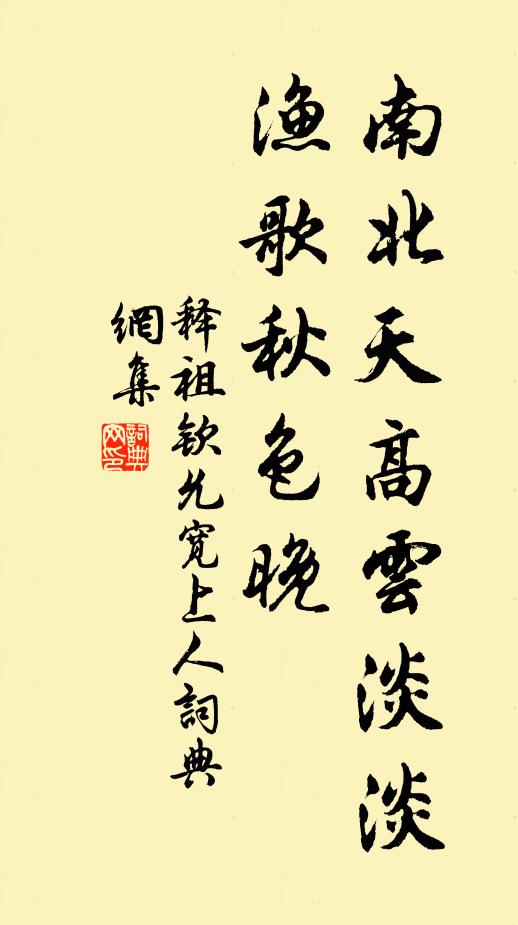 南北天高雲淡淡
漁歌秋色晚
释祖钦允寬上人詞典
網集
詞典
网印